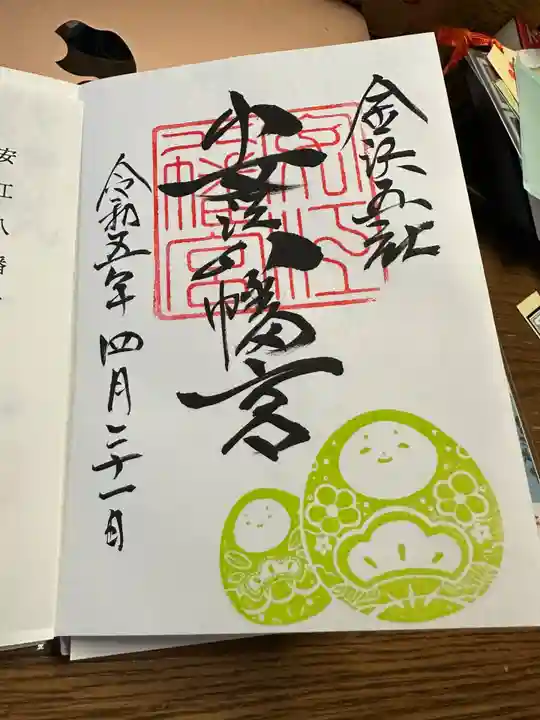 金沢五社
安江八幡宮
令和五年四月二十一日
安江八幡